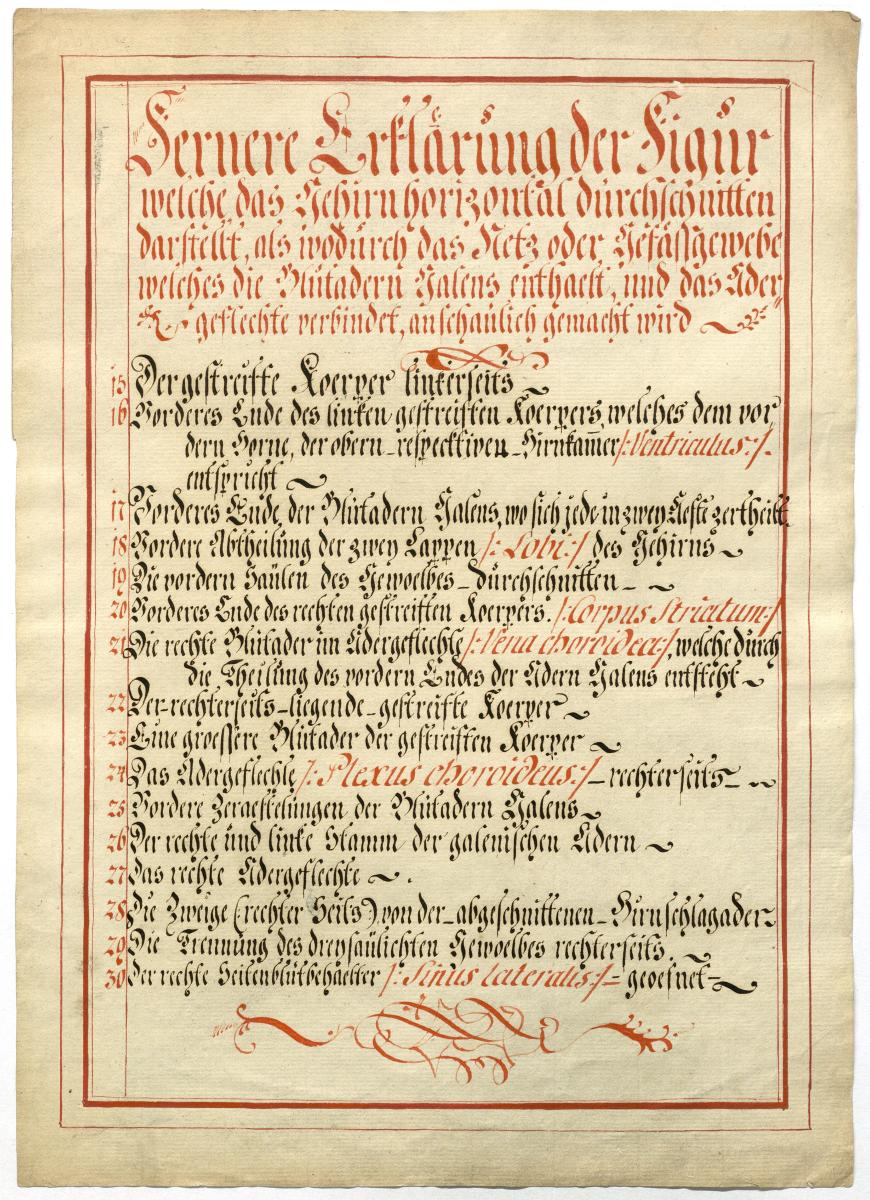 Fernere Erklärung der Figur
welche das Gehirn horizontal durchschnitten
darstellt, als wodurch das Netz oder Gefässgewebe
welches die Blutadern Galens enthaelt, und das Ader
geflechte verbindet, anschaulich gemacht wird
15 Der gestreifte Koerper linkerseits
16 Vorderes Ende des linken gestreiften Koerpers, welches dem vor
dern Horne, der obern respecktiven Hirnkam̅er /:Ventriculus:/.
entspricht
17 Vorderes Ende, der Blutadern Galens, wo sich jede in zwey Aeste zertheilt.
18 Vordere Abtheilung der zwey Lappen /: Lobi:/ des Gehirns
19 Die vordern Saülen des Gewoelbes durchschnitten
20 Vorderes Ende des rechten gestreiften Koerpers. /:Corpus Striatum:/
21 Die rechte Blutader im Adergeflechte /:Vena choroidea:/, welche durch
die Theilung des vordern Endes der Adern Galens entsteht
22 Der rechterseits liegende gestreifte Koerper
23 Eine groessere Blutader der gestreiften Koerper
24 Das Adergeflechte /: Plexus choroideus:/ rechterseits
25 Vordere Zeraestelungen der Blutadern Galens
26 Der rechte und linke Stamm der galenischen Adern
27 Das rechte Adergeflechte .
28 Die Zweige (rechter Seits) von der abgeschnittenen Hirnschlagader
29 Die Trennung des dreysaülichten Gewoelbes rechterseits.
30 Der rechte Seitenblutbehaelter /: Sinus lateralis:/= geoefnet